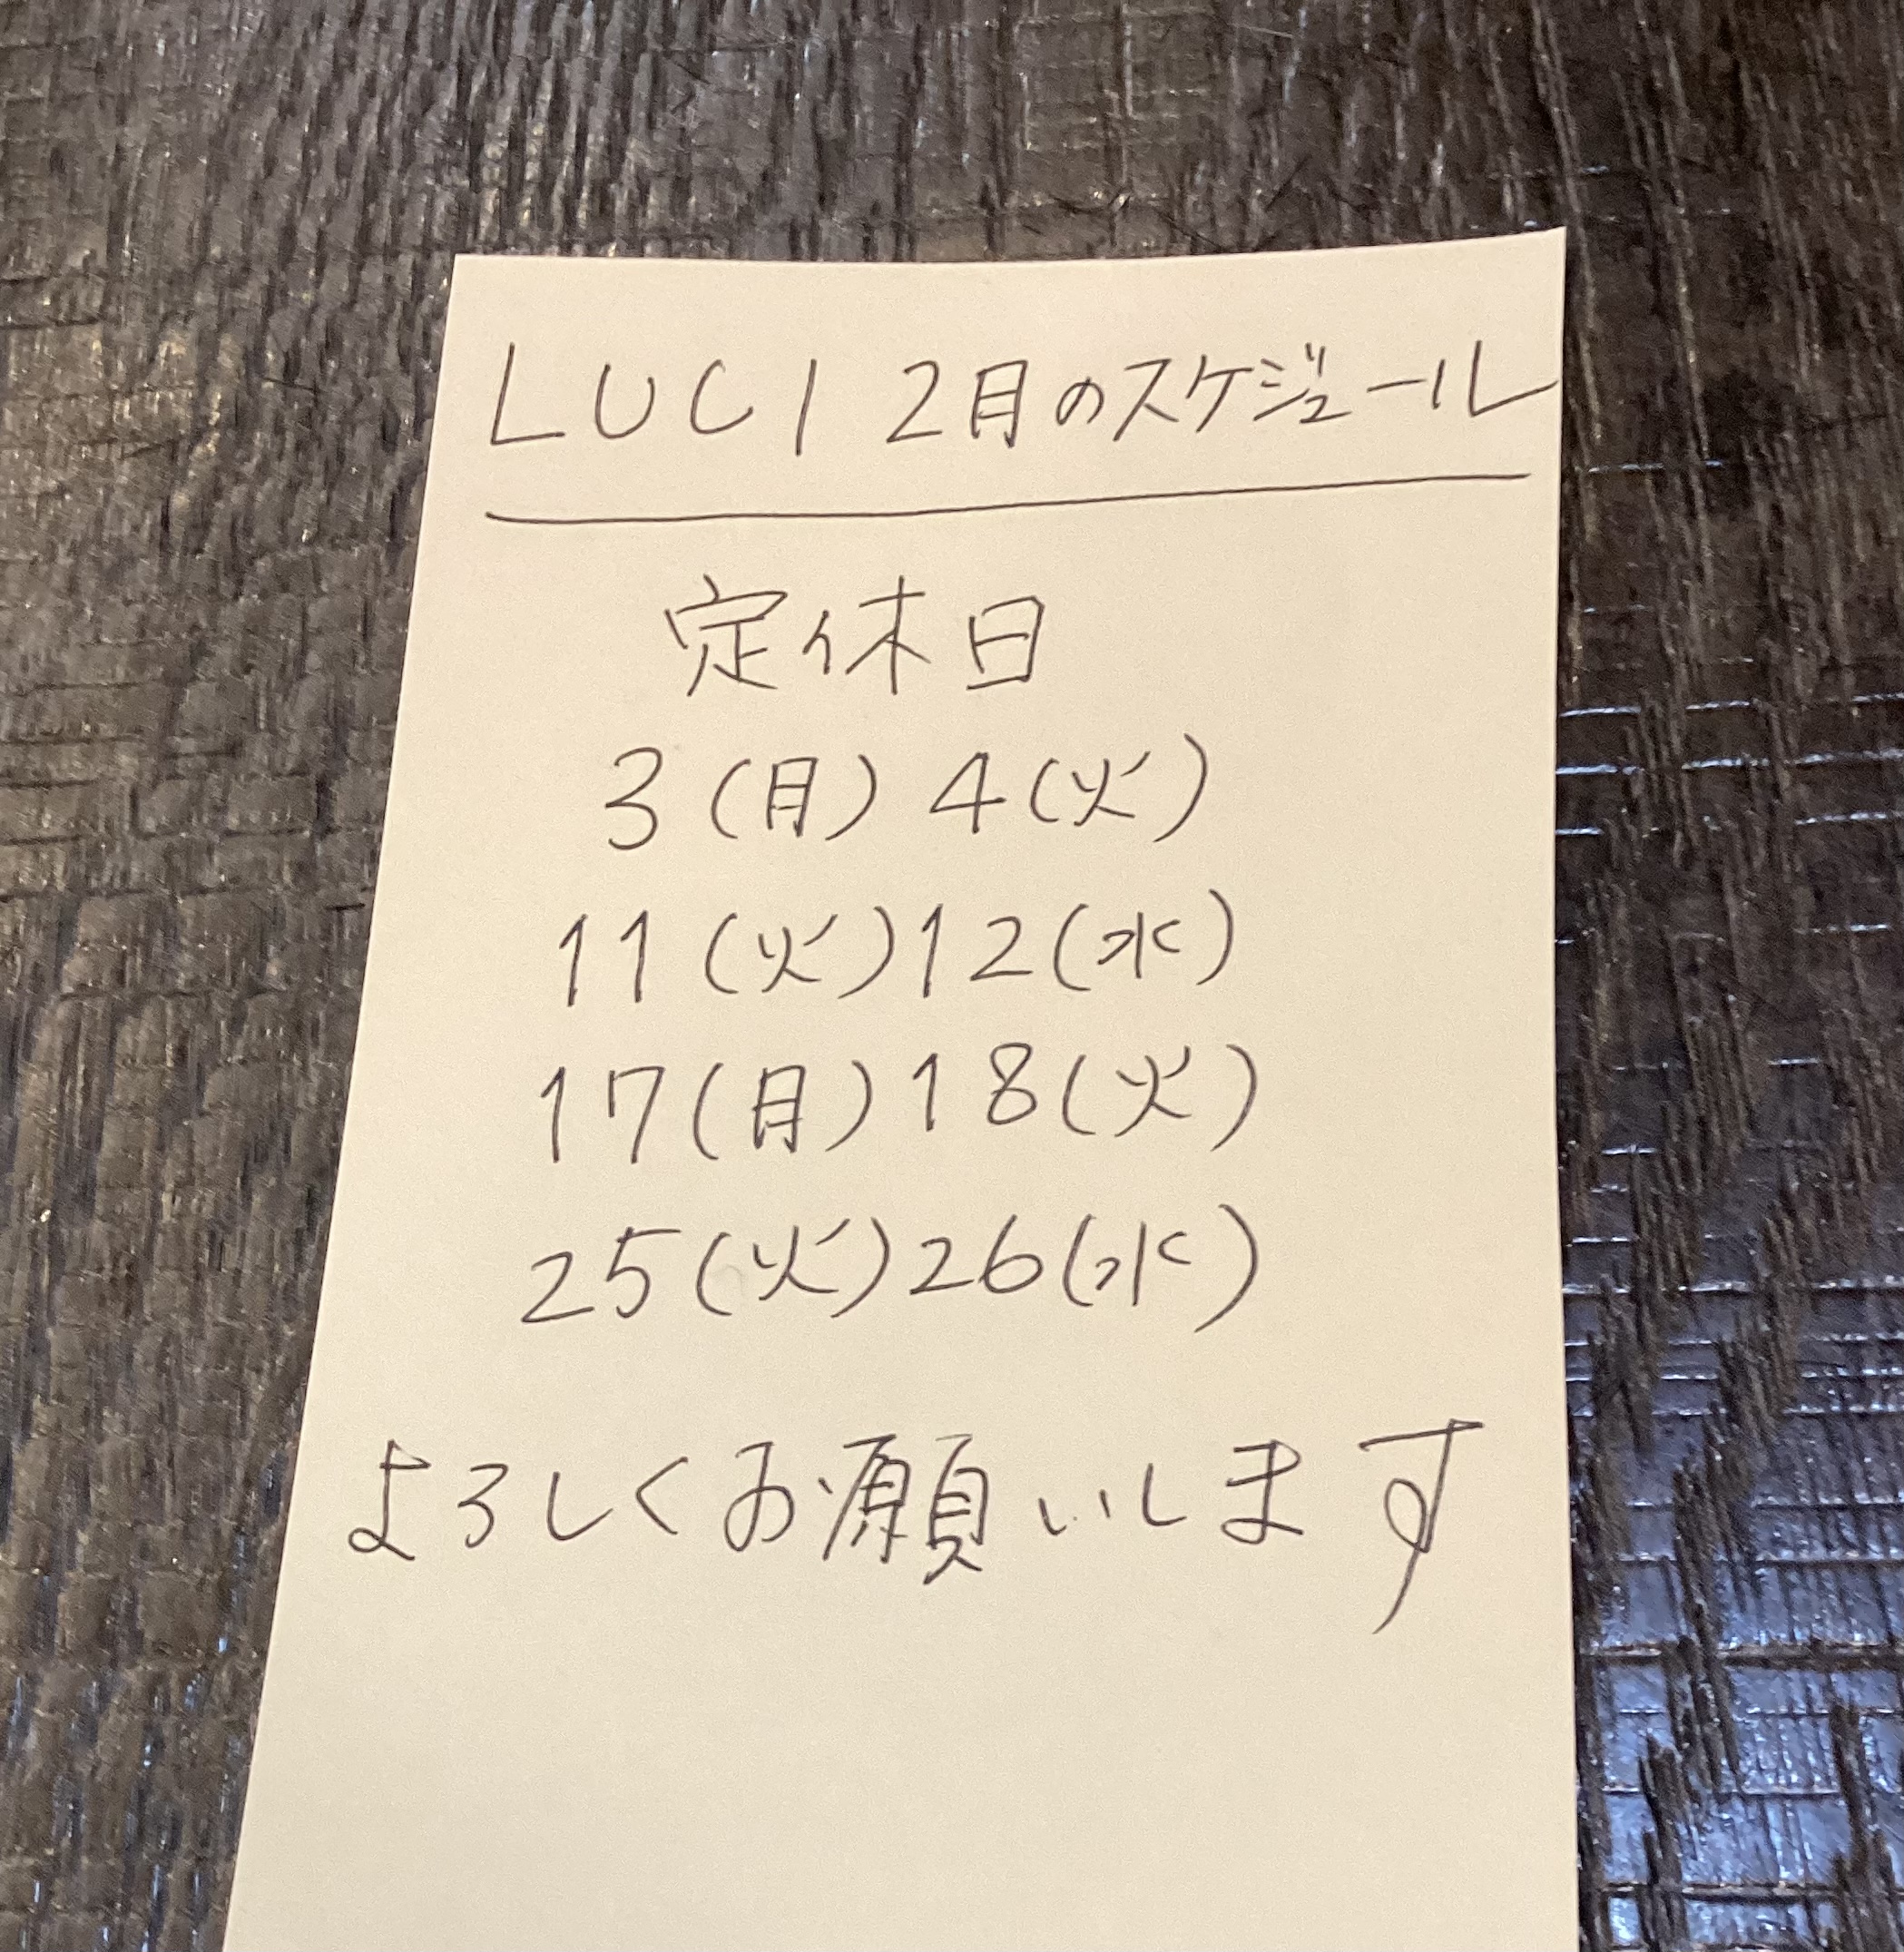 LUCI 2月のスケジュール
定休日
3(月)4(火)
11(火)12(水)
17(月)18(火)
25(火)26(水)
よろしくお願いします